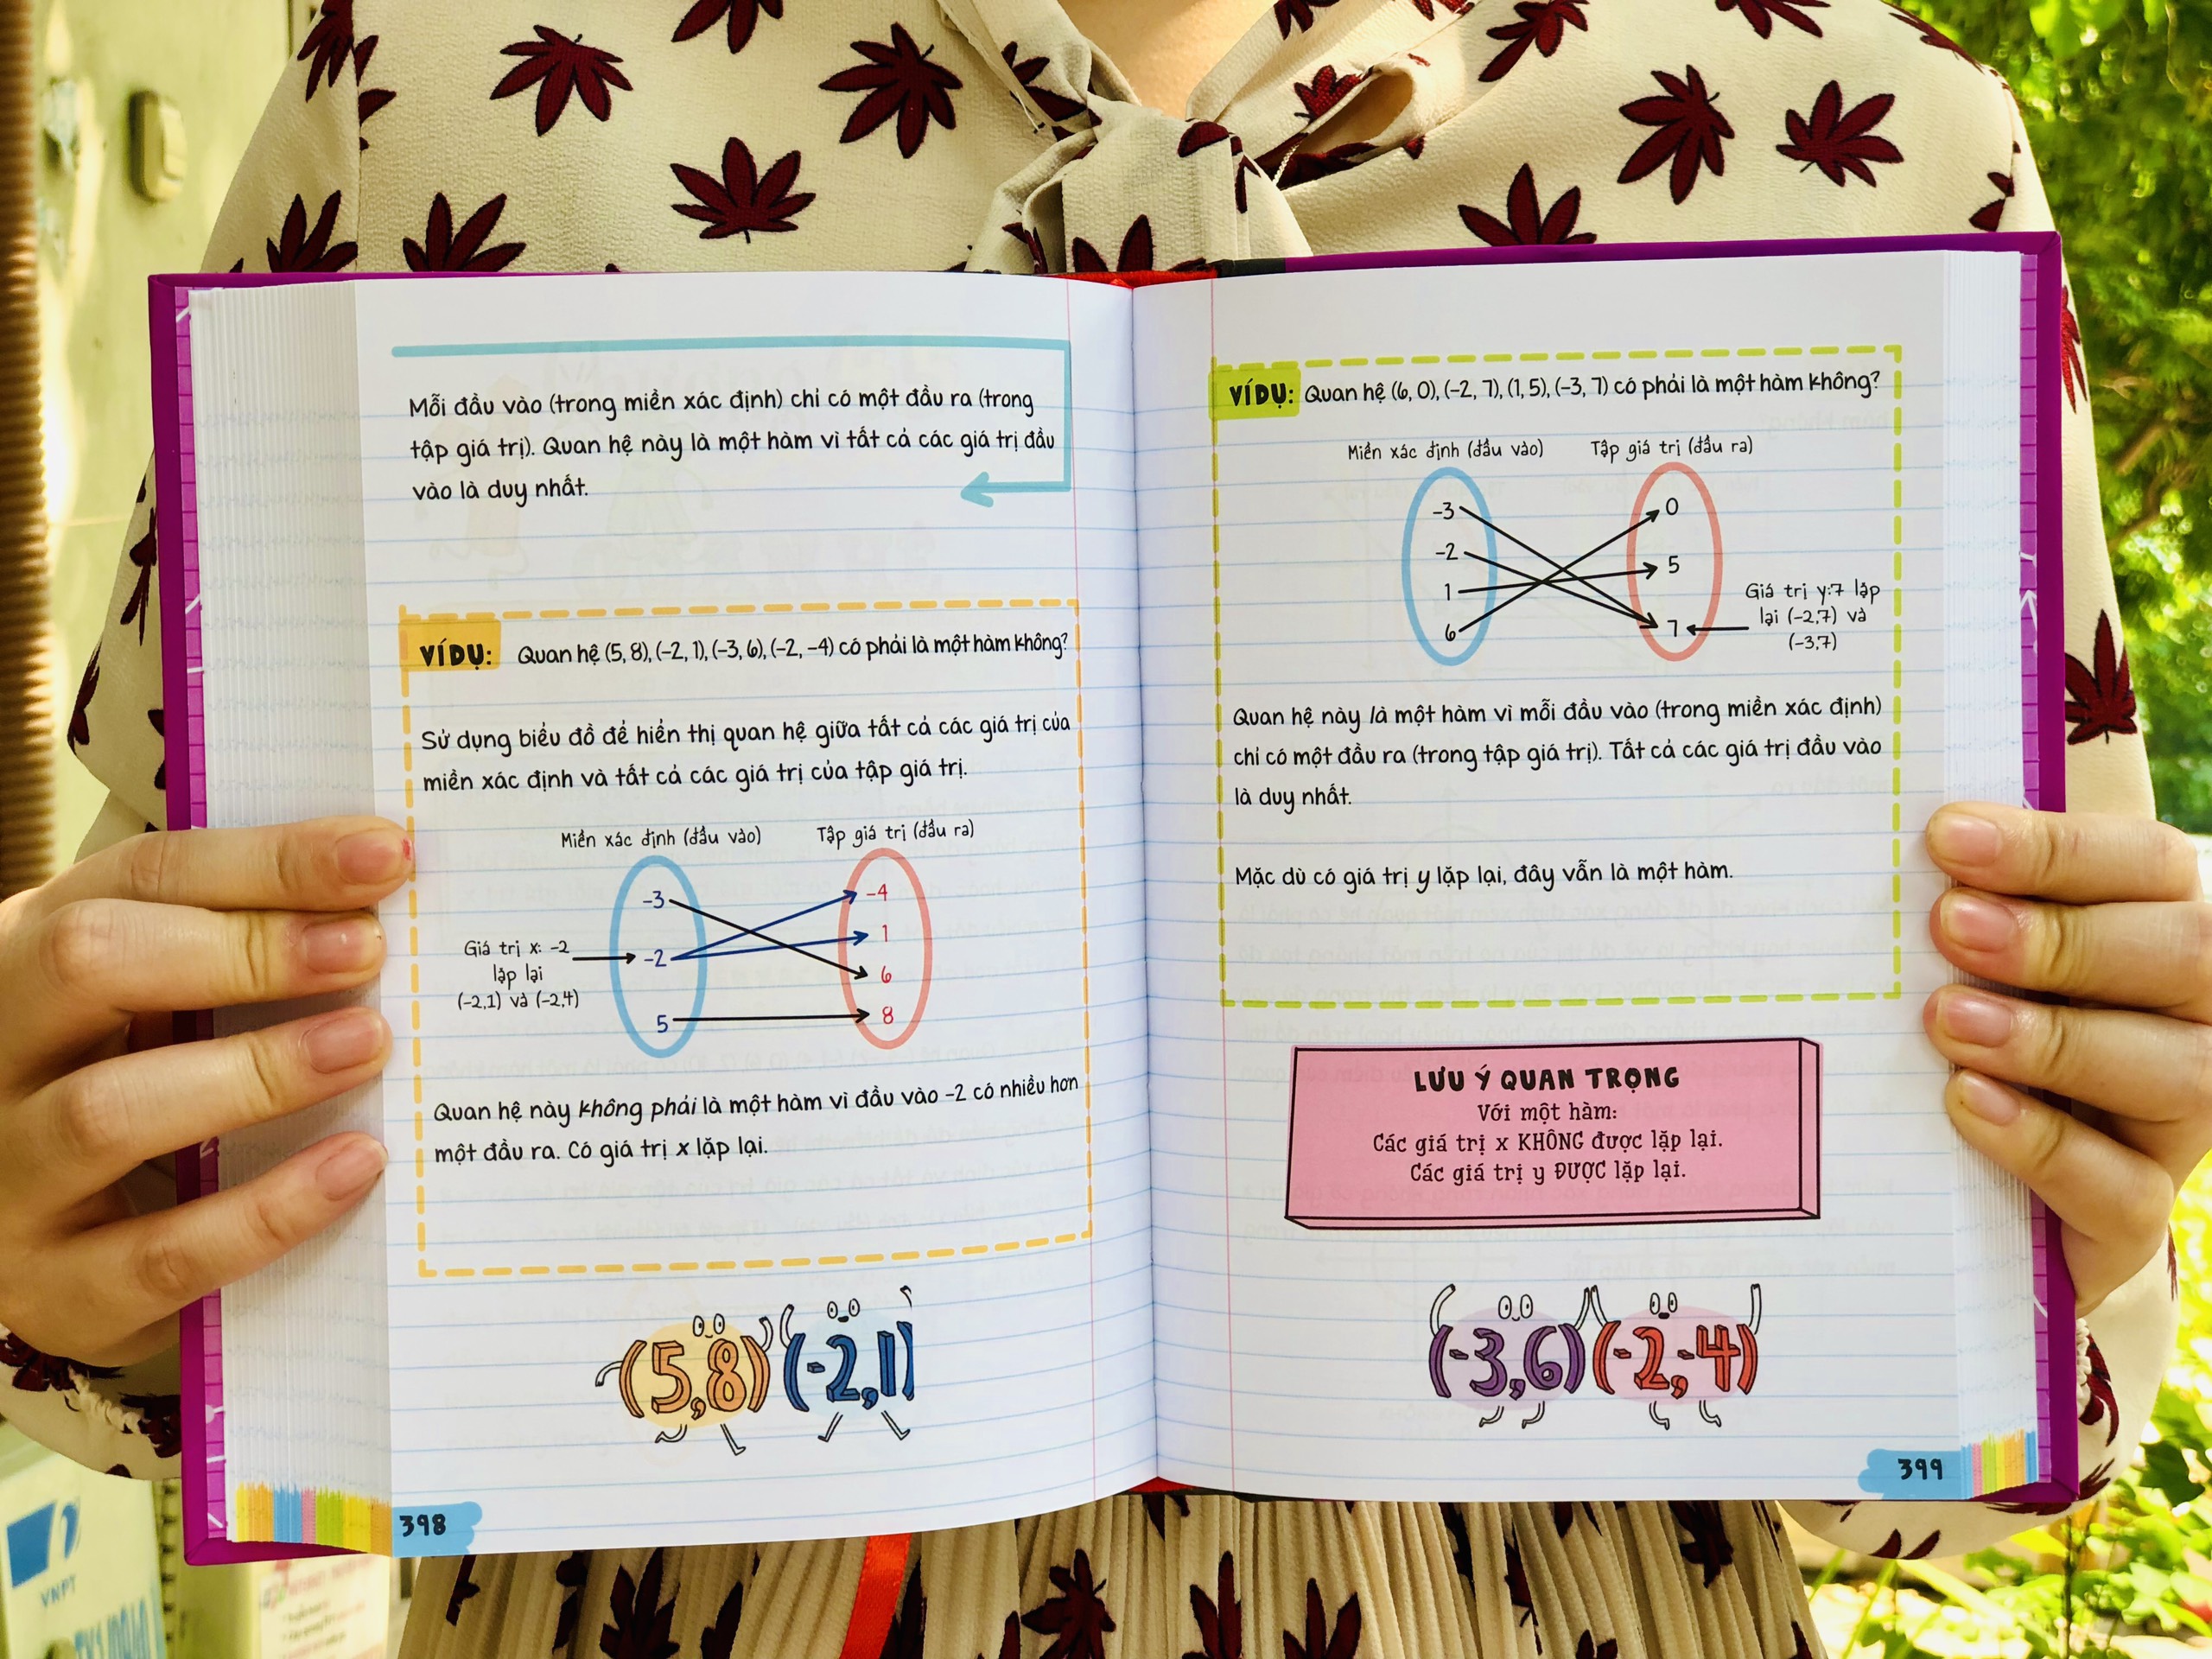 Mỗi đầu vào (trong miền xác định) chỉ có một đầu ra (trong
tập giá trị). Quan hệ này là một hàm vì tất cả các giá trị đầu
vào là duy nhất.
VÍ DỤ: Quan hệ (5, 8), (-2, 1), (-3, 6), (-2, -4) có phải là một hàm không?
Sử dụng biểu đồ để hiển thị quan hệ giữa tất cả các giá trị của
miền xác định và tất cả các giá trị của tập giá trị.
Miền xác định (đầu vào) Tập giá trị (đầu ra)
-3 -4
1
Giá trị x: -2
lập lại
(-2,1) và (-2,4)
-2
6
5 8
Quan hệ này không phải là một hàm vì đầu vào -2 có nhiều hơn
một đầu ra. Có giá trị x lặp lại.
(5,8) (-2,1)
398
VNPT
VÍ DỤ: Quan hệ (6, 0), (-2, 7), (1, 5), (-3, 7) có phải là một hàm không?
Miền xác định (đầu vào) Tập giá trị (đầu ra)
-3 0
-2 5
1
6 7
Giá trị y:7 lập
lại (-2,7) và
(-3,7)
Quan hệ này là một hàm vì mỗi đầu vào (trong miền xác định)
chỉ có một đầu ra (trong tập giá trị). Tất cả các giá trị đầu vào
là duy nhất.
Mặc dù có giá trị y lặp lại, đây vẫn là một hàm.
LƯU Ý QUAN TRỌNG
Với một hàm:
Các giá trị x KHÔNG được lặp lại.
Các giá trị y ĐƯỢC lặp lại.
(-3,6) (-2,-4)
399